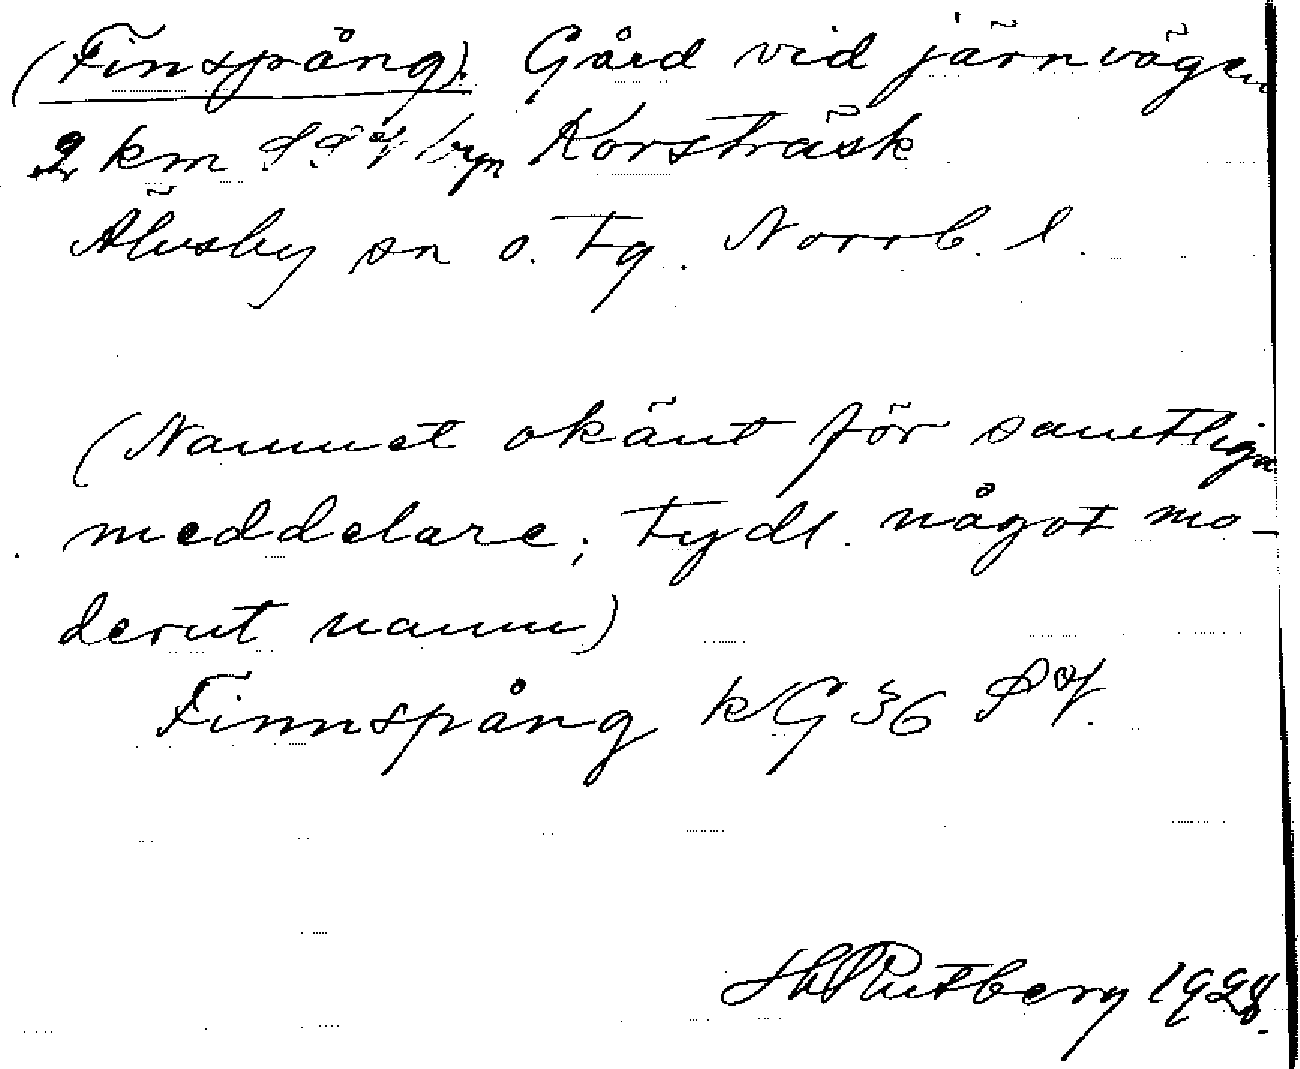 (Finspång). Gård vid järnvägen
2 km S.S.V. byn Korsträsk
Älvsby sn o. tg. Norrb. l.
(Namnet okänt för samtliga
meddelare; tydl. något mo-
dernt namn)
Finnspång kG 36 SV.
Rutberg 1928.